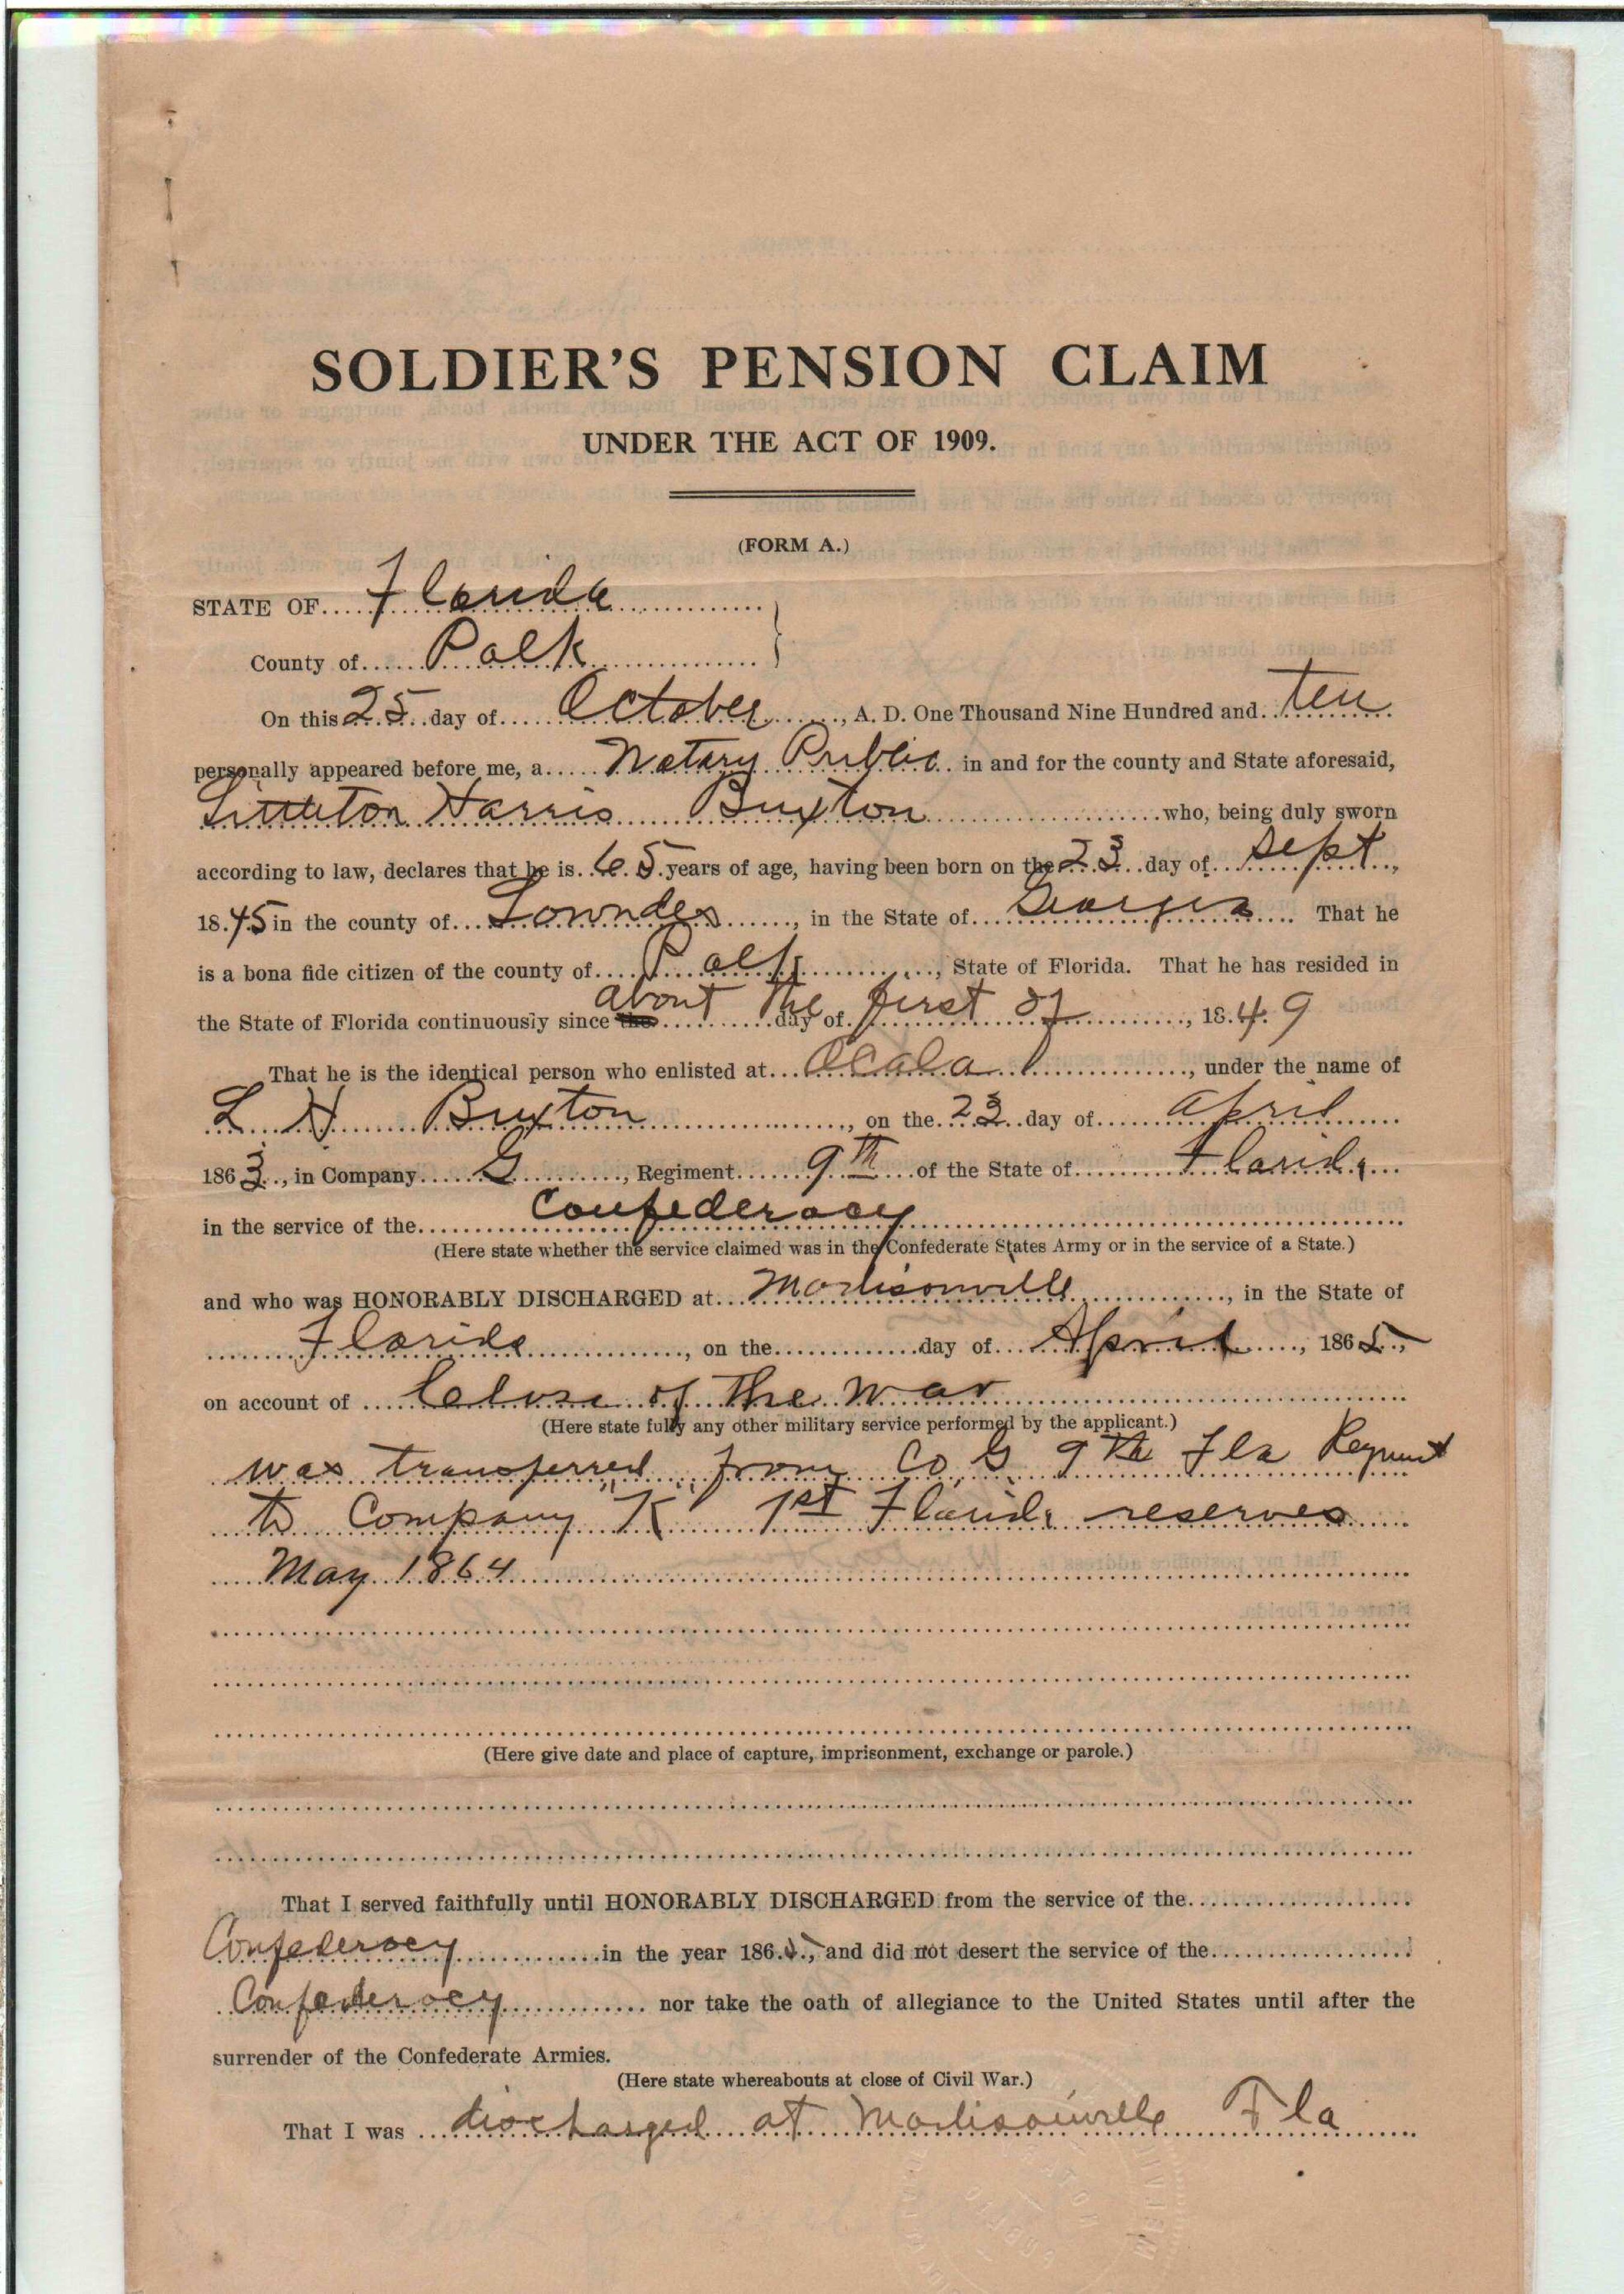 SOLDIER'S PENSION CLAIM
UNDER THE ACT OF 1909.
(FORM A.)
STATE OF Florida
County of Polk
On this 25 day of October, A. D. One Thousand Nine Hundred and ten
personally appeared before me, a Notary Public in and for the county and State aforesaid,
Littleton Harris Buxton who, being duly sworn
according to law, declares that he is 65 years of age, having been born on the 23 day of Sept,
1845 in the county of Lowndes, in the State of Georgia. That he
is a bona fide citizen of the county of Polk, State of Florida. That he has resided in
the State of Florida continuously since the about the day of first of, 1849
That he is the identical person who enlisted at Ocala, under the name of
L H Buxton, on the 23 day of April
1863, in Company G, Regiment 9th of the State of Florida
in the service of the Confederacy
(Here state whether the service claimed was in the Confederate States Army or in the service of a State.)
and who was HONORABLY DISCHARGED at Madisonville, in the State of
Florida, on the day of April, 1865,
on account of Close of the war
(Here state fully any other military service performed by the applicant.)
was transferred from Co G 9th Fla Regiment
to Company "K" 1st Florida reserves
May 1864
(Here give date and place of capture, imprisonment, exchange or parole.)
That I served faithfully until HONORABLY DISCHARGED from the service of the
Confederacy in the year 1865, and did not desert the service of the
Confederacy nor take the oath of allegiance to the United States until after the
surrender of the Confederate Armies.
(Here state whereabouts at close of Civil War.)
That I was discharged at Madisonville Fla